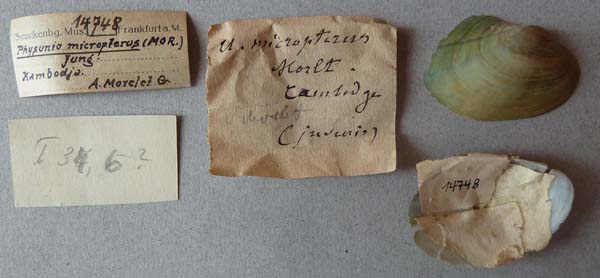 14748
Senckenbg. Mus. Frankfurt a. M.
Physunio micropterus (MOR.)
Jung
Kambodja.
A. Morelet G.
U. micropterus
Morlt.
Cambodge
(juvenis)
I 34, 6?
14748